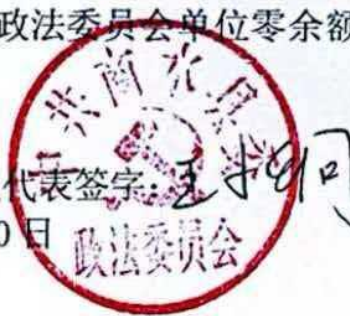 政法委员会单位零余额
代表签字:
0日
中共商水县委
政法委员会